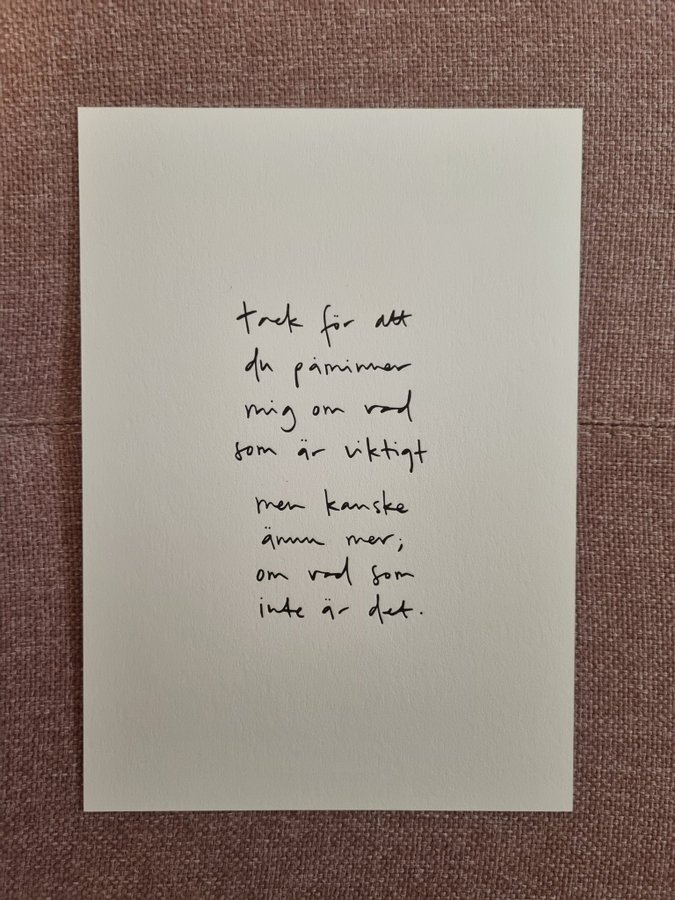 tack för att
du påminner
mig om vad
som är viktigt
men kanske
ännu mer;
om vad som
inte är det.